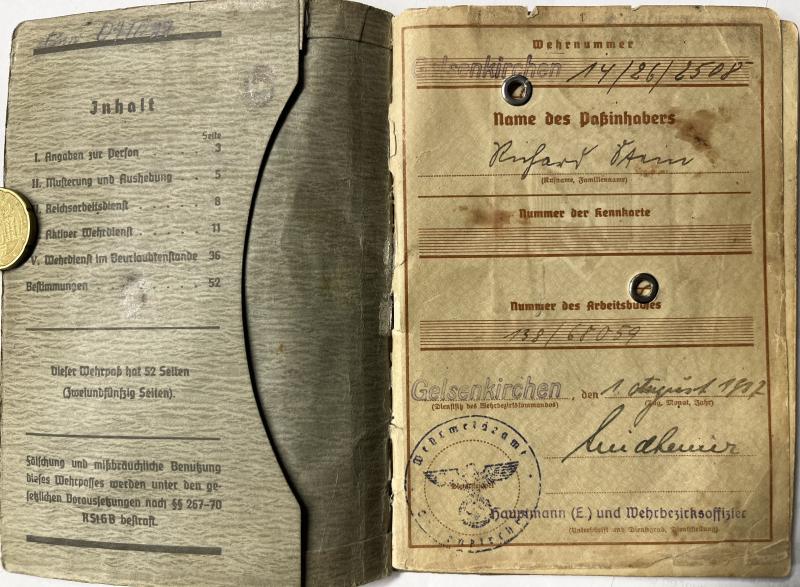 Inhalt
Seite
I. Angaben zur Person 3
II. Musterung und Aushebung 5
Reichsarbeitsdienst 8
Aktiver Wehrdienst 11
V. Wehrdienst im Beurlaubtenstande 36
Bestimmungen 52
Dieser Wehrpaß hat 52 Seiten
(Zweiundfünfzig Seiten).
Fälschung und mißbräuchliche Benutzung
dieses Wehrpasses werden unter den ge-
setzlichen Voraussetzungen nach §§ 267–70
RStGB bestraft.
Wehrnummer
Gelsenkirchen 14/26/2508
Name des Paßinhabers
Richard Stein
(Rufname, Familienname)
Nummer der Kennkarte
Nummer des Arbeitsbuches
138/68059
Gelsenkirchen, den 1. August
(Dienstsitz des Wehrbezirkskommandos) (Tag, Monat, Jahr)
Lindheimer
Wehrmeldeamt
Hauptmann (E.) und Wehrbezirksoffizier
(Unterschrift und Dienstgrad, Dienststellung)